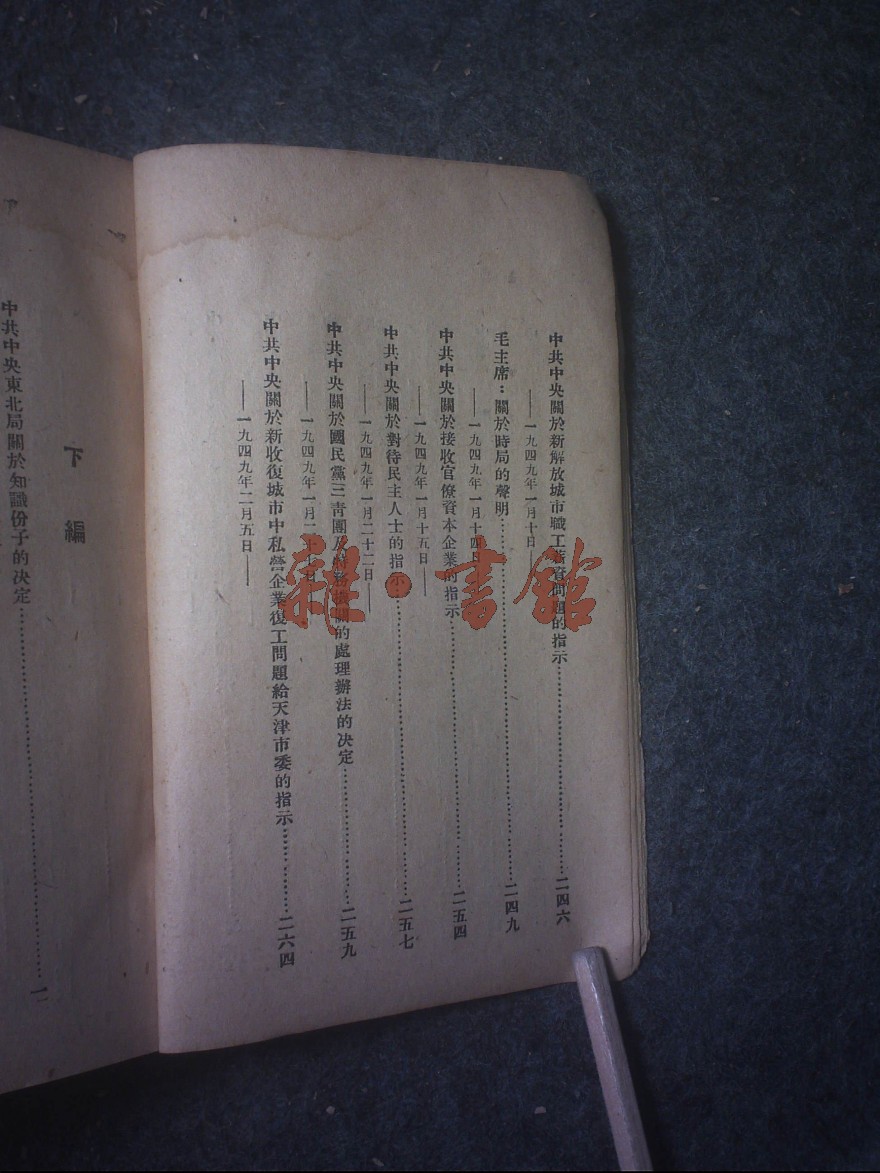 中共中央關於新解放城市職工薪資問題的指示……二四六
——一九四九年一月十日——
毛主席：關於時局的聲明……二四九
——一九四九年一月十四日——
中共中央關於接收官僚資本企業的指示……二五四
——一九四九年一月十五日——
中共中央關於對待民主人士的指示……二五七
——一九四九年一月二十二日——
中共中央關於國民黨三青團及特務機關的處理辦法的決定……二五九
中共中央關於新收復城市中私營企業復工問題給天津市委的指示……二六四
——一九四九年二月五日——
下編
中共中央東北局關於知識份子的決定……一
雜·書館